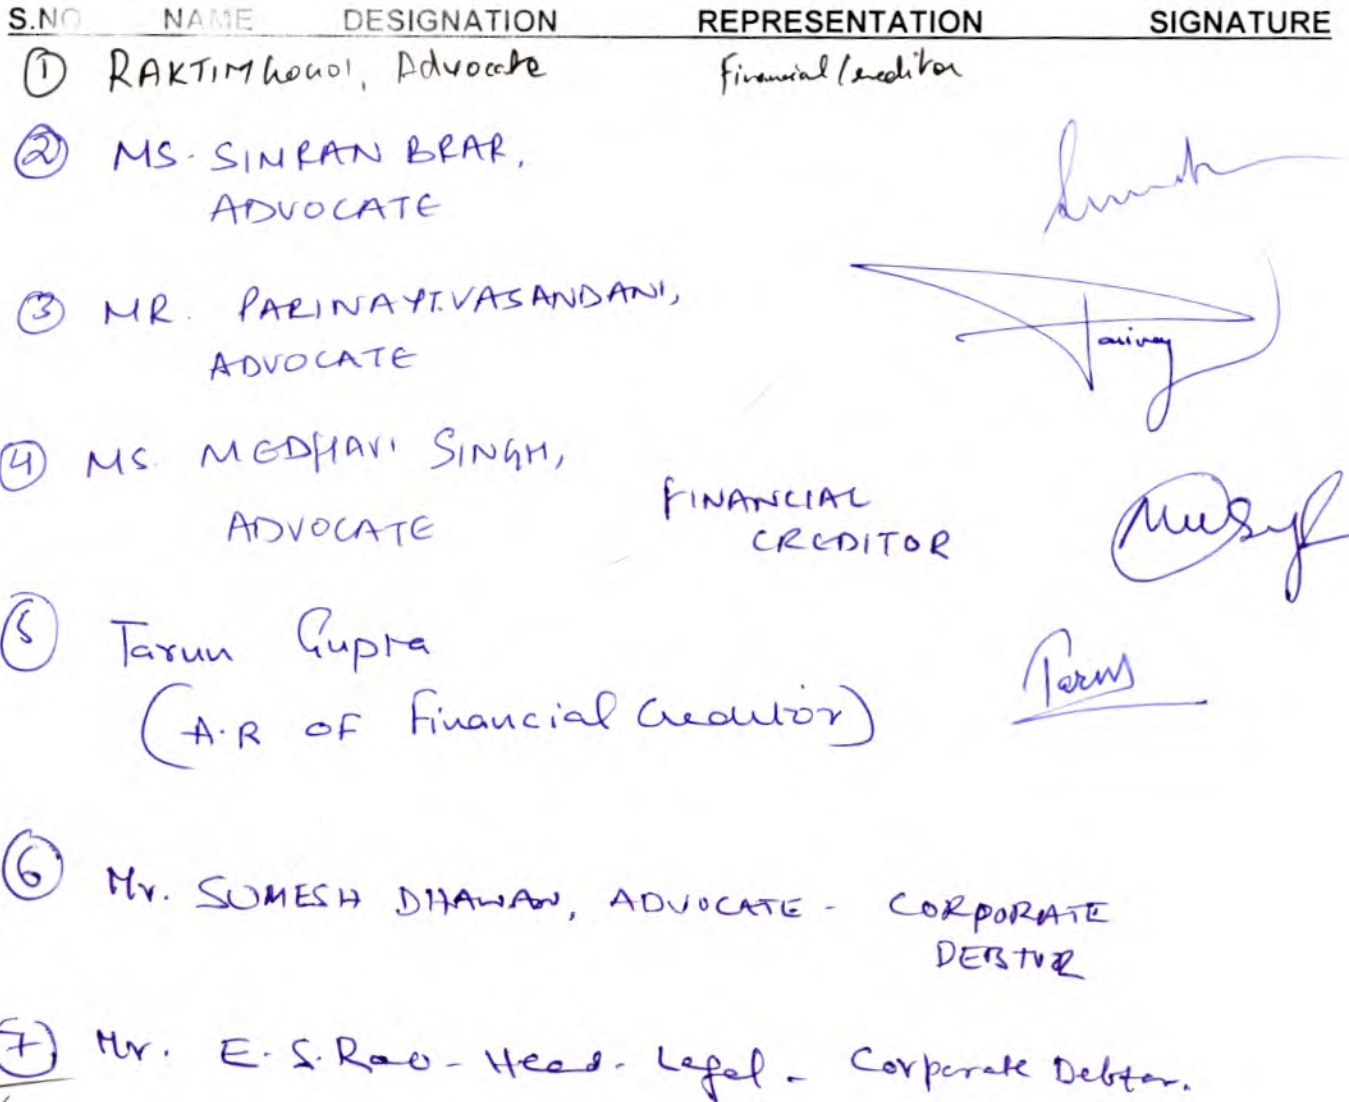 S.NO NAME DESIGNATION REPRESENTATION SIGNATURE
① RAKTIM GOGOI, Advocate Financial Creditor
② MS. SIMRAN BRAR,
ADVOCATE
③ MR. PARINAY T. VASANDANI,
ADVOCATE
④ MS. MEDHAVI SINGH,
ADVOCATE
FINANCIAL
CREDITOR
⑤ Tarun Gupta
(A.R OF Financial Creditor)
Tarun
⑥ Mr. SUMESH DHAWAN, ADVOCATE - CORPORATE
DEBTOR
⑦ Mr. E. S. Rao - Head - Legal - Corporate Debtor.